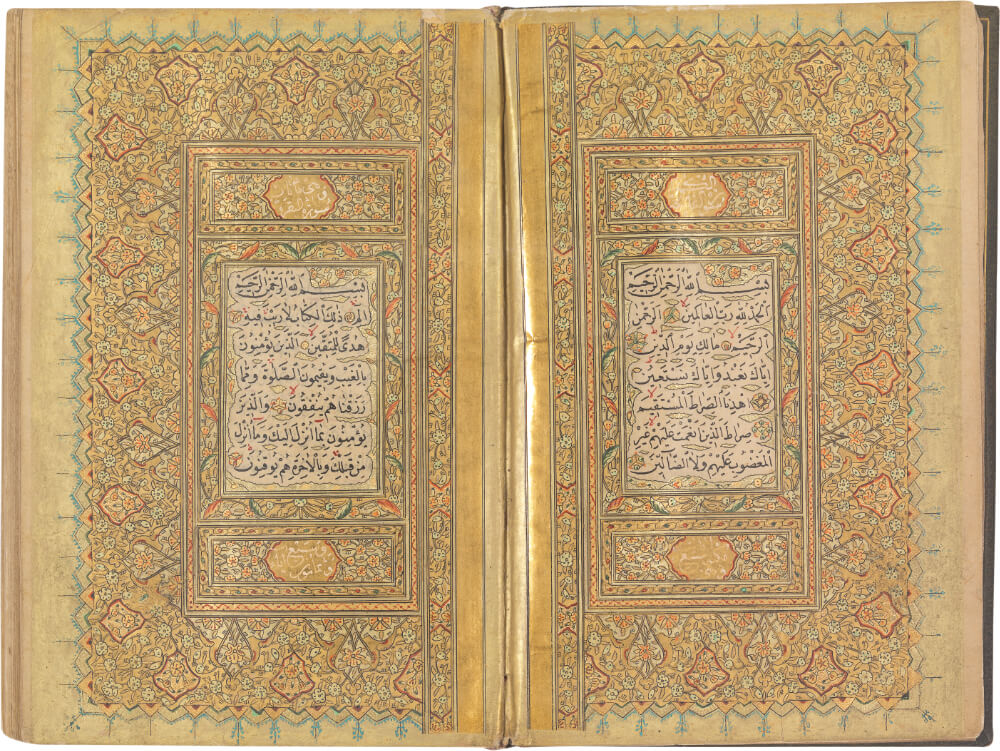 بسم الله الرحمن الرحيم
الحمد لله رب العالمين الرحمن
الرحيم مالك يوم الدين
اياك نعبد واياك نستعين
اهدنا الصراط المستقيم
صراط الذين انعمت عليهم غير
المغضوب عليهم ولا الضالين
سورة البقرة
بسم الله الرحمن الرحيم
الم ذلك الكتاب لا ريب فيه
هدى للمتقين الذين يؤمنون
بالغيب ويقيمون الصلوة ومما
رزقناهم ينفقون والذين
يؤمنون بما انزل اليك وما انزل
من قبلك وبالاخرة هم يوقنون